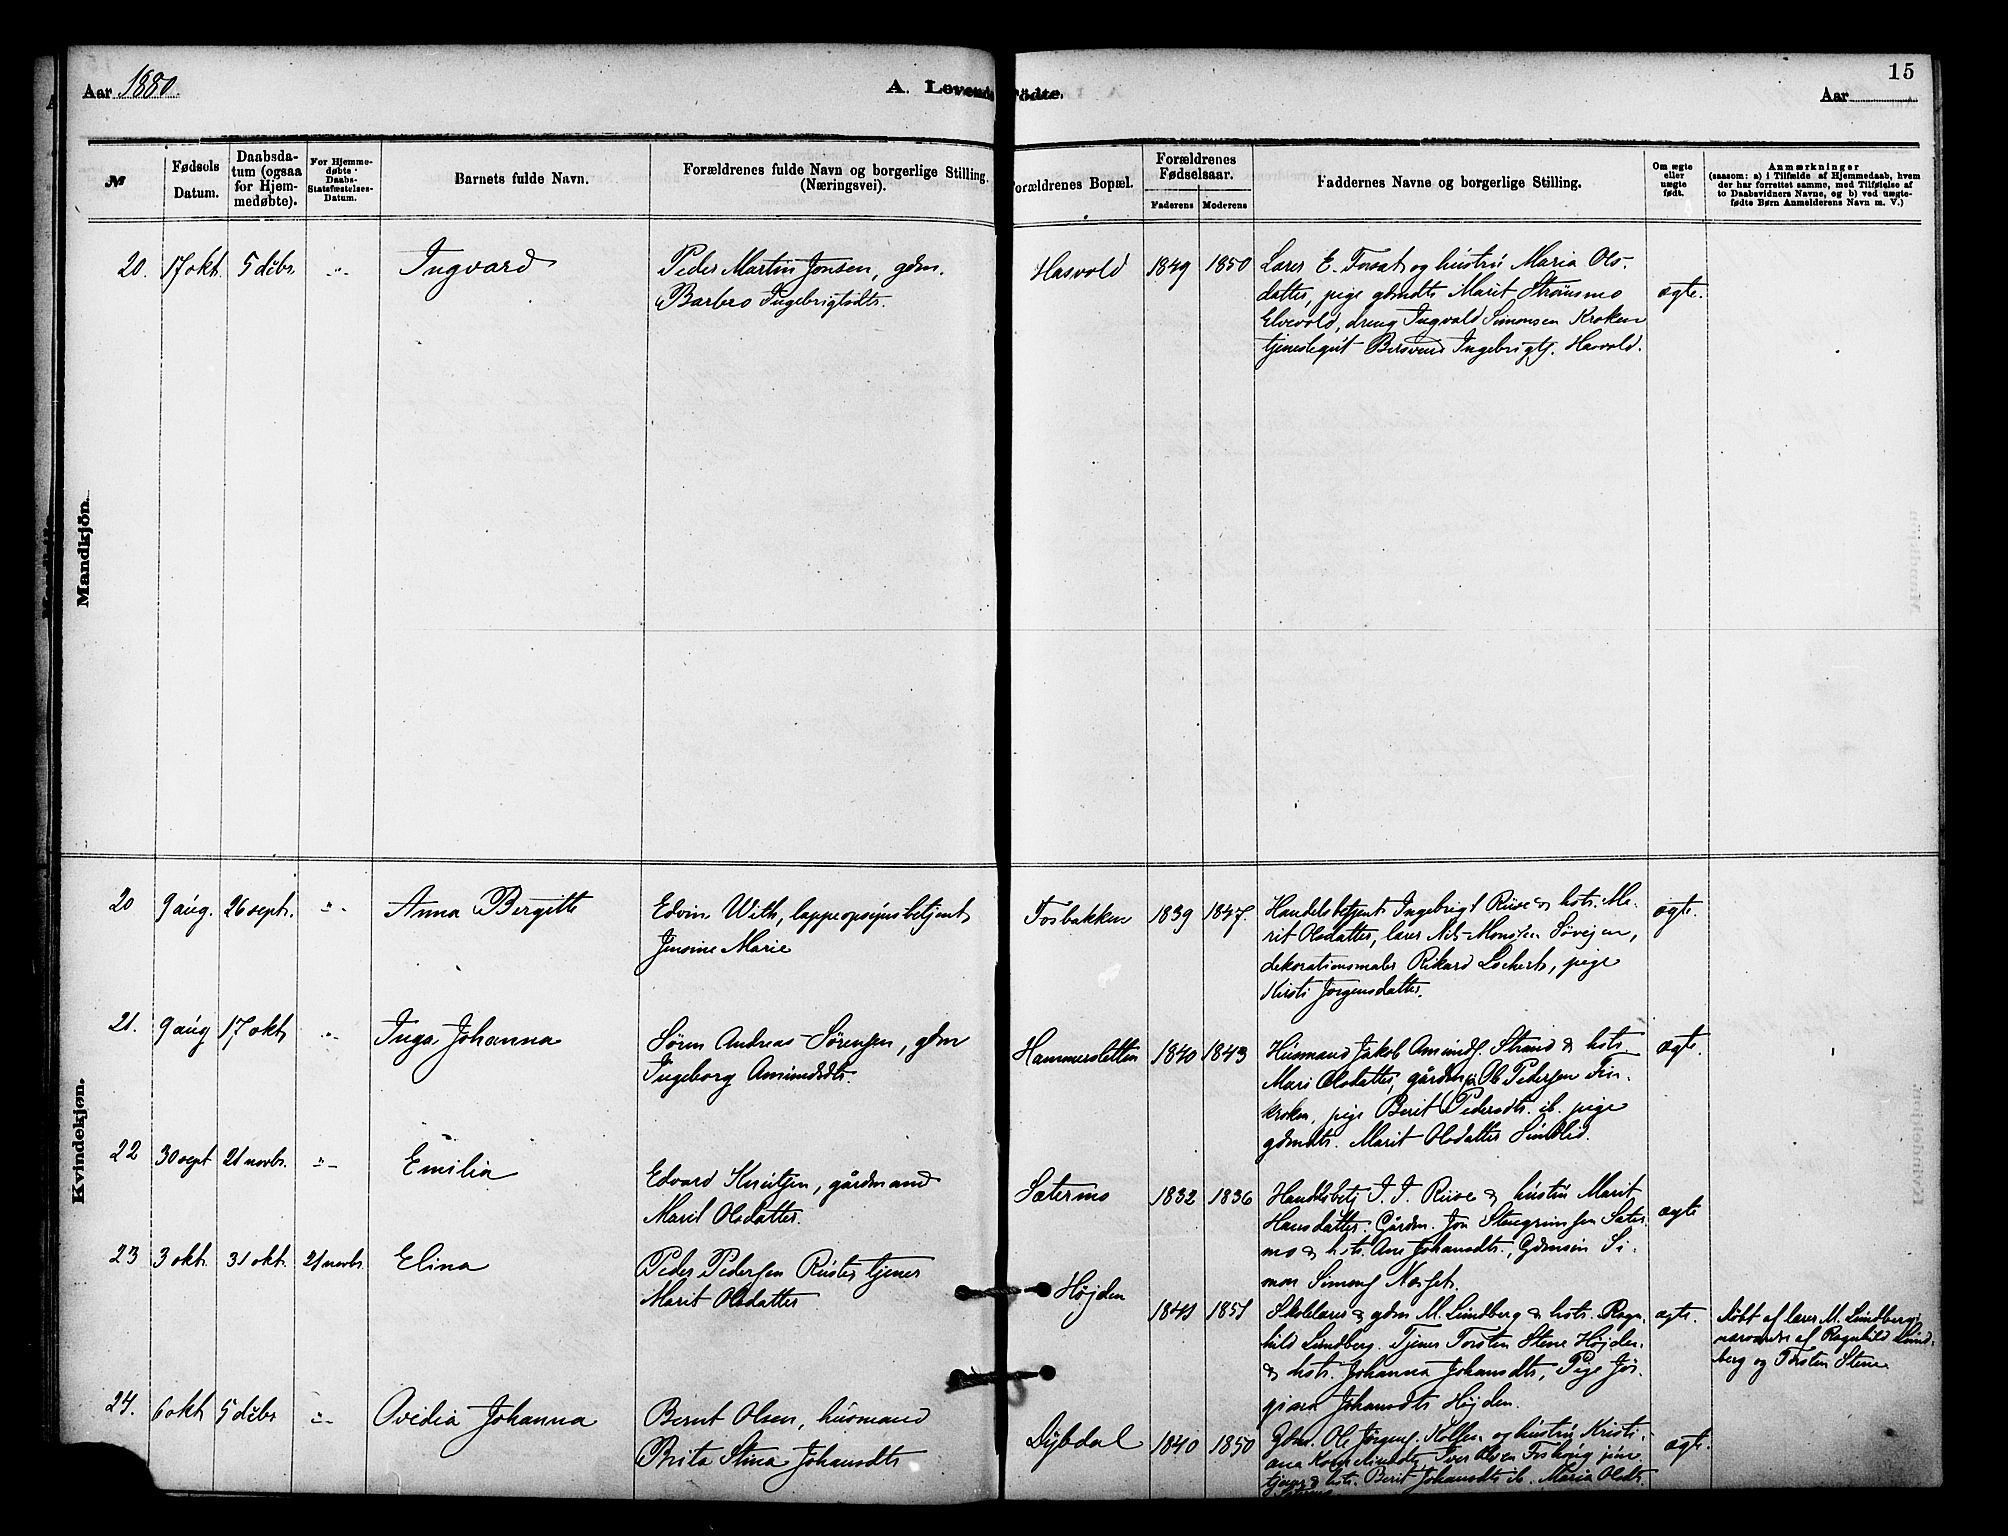 Aar 1880.
A. Levende Födte.
15
Aar
№
Fødsels Datum.
Daabsdatum (ogsaa for Hjemmedøbte).
For Hjemmedøbte Daabs-Statsfæstelses-Datum.
Barnets fulde Navn.
Forældrenes fulde Navn og borgerlige Stilling.
(Næringsvei).
Forældrenes Bopæl.
Forældrenes Fødselsaar.
Faderens
Moderens
Faddernes Navne og borgerlige Stilling.
Om ægte eller uægte født.
Anmærkninger
(saasom: a) i Tilfælde af Hjemmedaab, hvem
der har forrettet samme, med Tilføielse af
to Daabsvidners Navne, og b) ved uægte-
fødte Børn Anmelderens Navn m. V.)
Mandkjön.
20. 17 okt. 5 dcbr. -"- Ingvard
Peder Martin Jonsen, gdm.
Barbro Ingebrigtsdtr.
Hasvold 1849 1850
Lærer E. Forsat og hustrú Maria Ols-
datter, pige gdmdtr Marit Strömsmo
Elvevold, dreng Ingvald Simonsen Kroken
tjenestegút Bersvend Ingebrigts. Hasvold.
ægte.
Kvindekjøn.
20 9 aúg. 26 septr. -"- Anna Bergitte
Edvin With, lappeopsynsbetjent
Jensine Marie
Fosbakken 1839 1847.
Handelsbetjent Ingebrigt Rúse & hstr. Me-
rit Olsdatter, lærer Nils Monsen Søvejen,
dekorationsmaler Rikard Lochert, pige
Kirsti Jørgensdatter.
ægte.
21. 9 aúg 17 okt -"- Inga Johanna
Søren Andreas Sørensen, gdm
Ingeborg Amúndsdtr.
Hammersletten 1840 1843
Húsmand Jakob Amúnds. Strand & hstr
Mari Olsdatter, gårdm Ole Pedersen Fin-
kroken, pige Berit Pedersdtr. ib. pige
gdmdtr. Marit Olsdatter Súndlid.
ægte.
22 30 sept 21 novbr. -"- Emilia
Edvard Knútsen, gårdmand
Marit Olsdatter.
Sætermo 1832 1836
Handelsbetj I. I. Rúse & hústrú Marit
Hansdatter. Gårdm. Jon Stengrimsen Sæter-
mo & hstr. Ane Johansdtr., Gdmsøn Si-
mon Simons. Norset.
ægte
23 3 okt. 31 okt. 21 novbr. Elina
Peder Pedersen Rúster tjener
Marit Olsdatter
Højden 1841 1851
Skolelærer & gdm M. Lúndberg & hstr. Ragn-
hild Lúndberg. Tjener Torsten Stene Højden
& hstr. Johanna Johansdtr, Pige Jör-
gina Johansdtr Højden.
ægte.
Døbt af lærer M. Lúndberg i
nærværelse af Ragnhild Lúnd-
berg og Torsten Stene.
24. 6 okt 5 dcbr -"- Ovidia Johanna
Bernt Olsen, húsmand
Brita Stina Johansdtr
Dÿbdal 1840 1850
Gdm. Ole Jörgens. Kolsen og hústrú Kristi-
ana Iver Olsen
tjener & hstr. Berit Johansdtr ib. Maria Olsdtr
ægte.